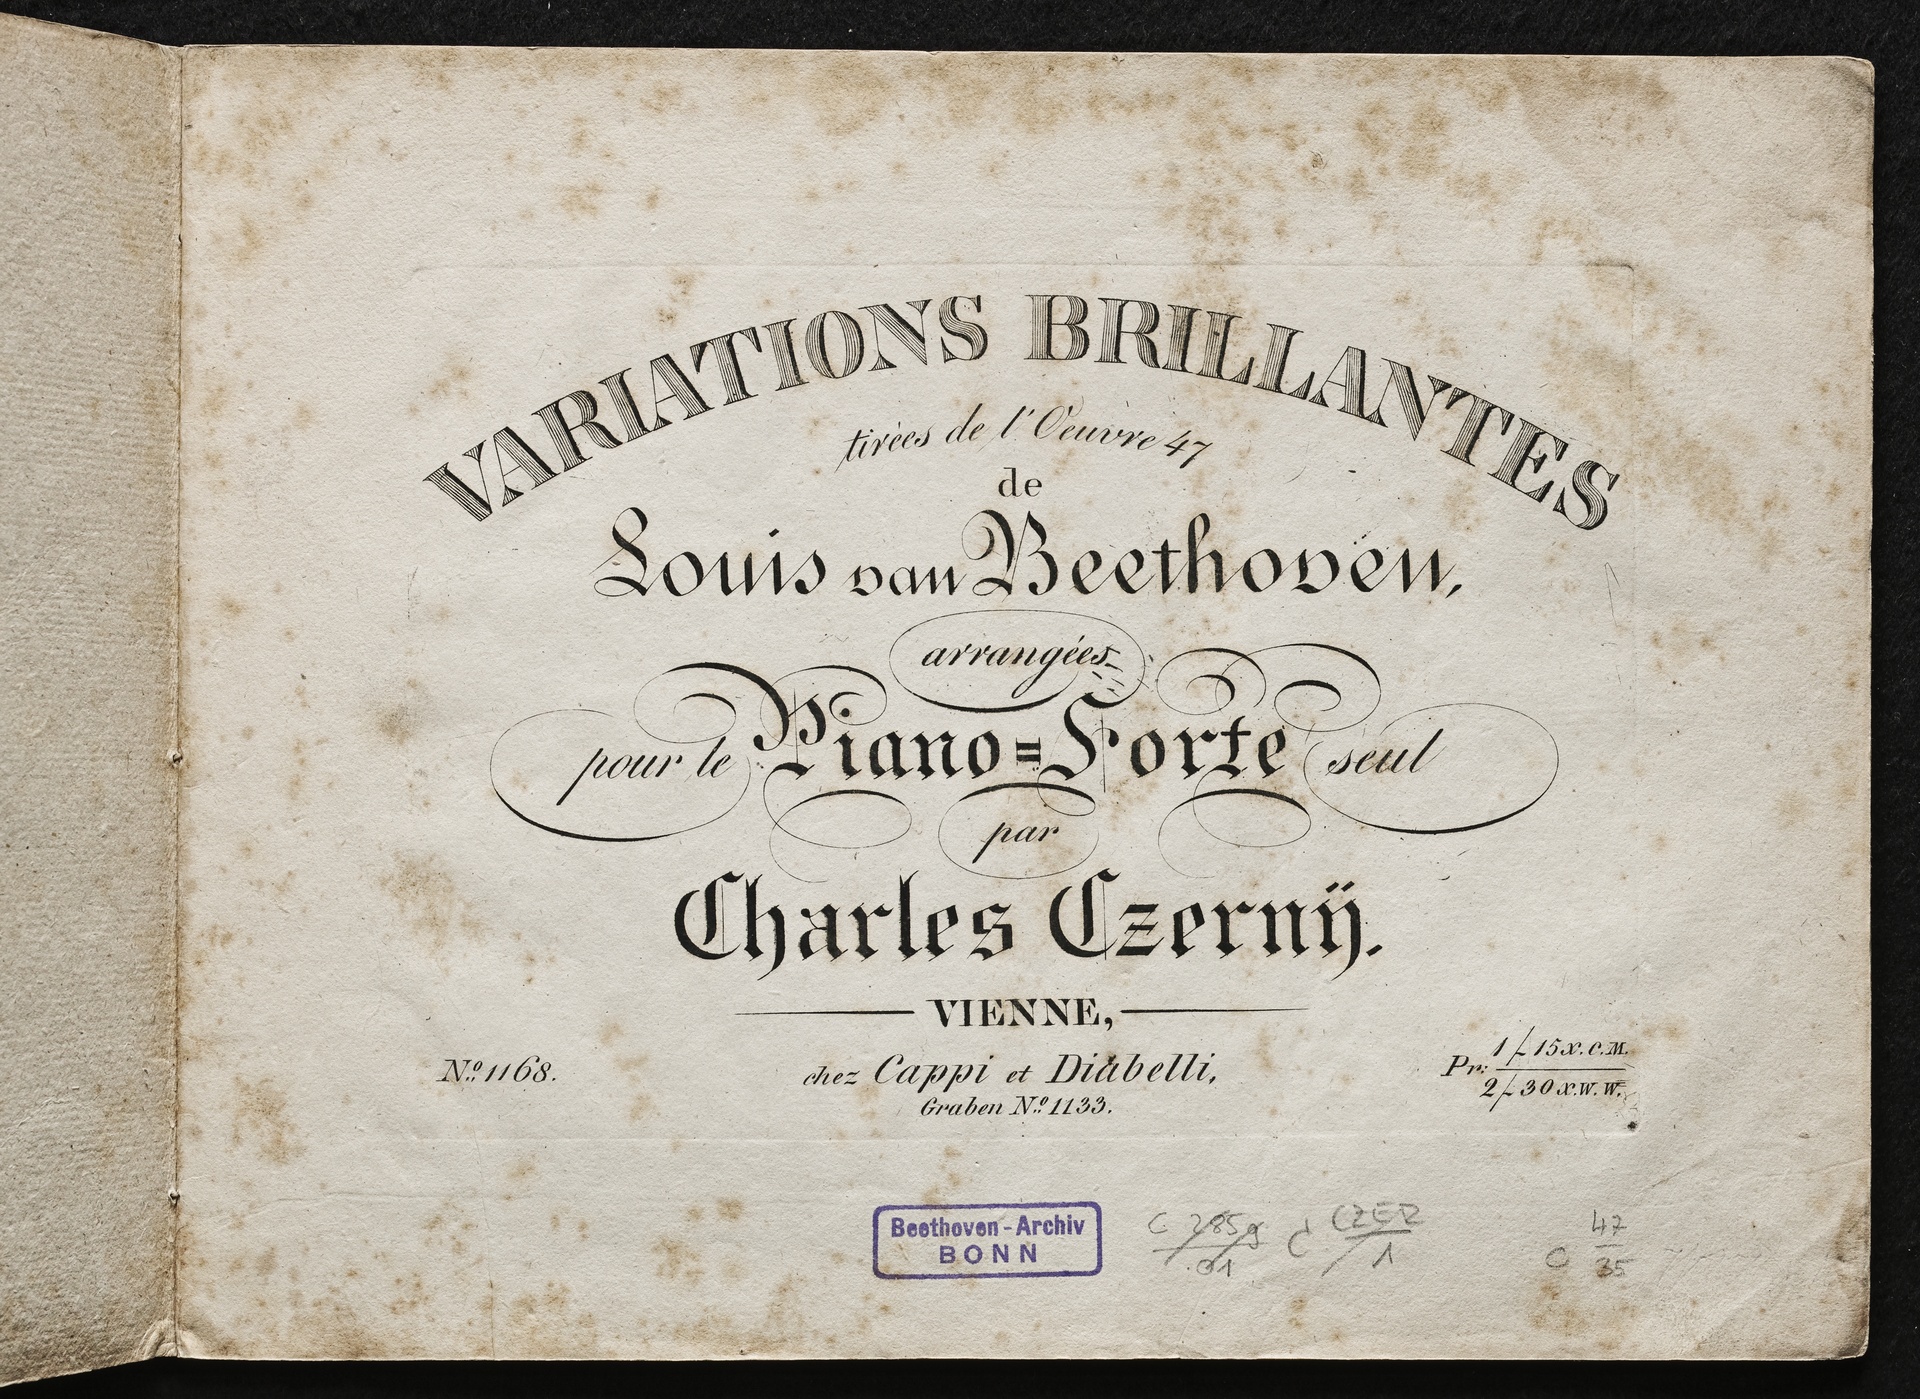 VARIATIONS BRILLANTES
tirées de l'Oeuvre 47
de
Louis van Beethoven,
arrangées
pour le Piano=Forte seul
par
Charles Czernÿ.
VIENNE,
chez Cappi et Diabelli,
Graben N.º 1133.
N.º 1168.
Pr: 1 f. 15 x. C.M.
2 f. 30 x. W.W.
Beethoven-Archiv
BONN
C CZER
1
47
35